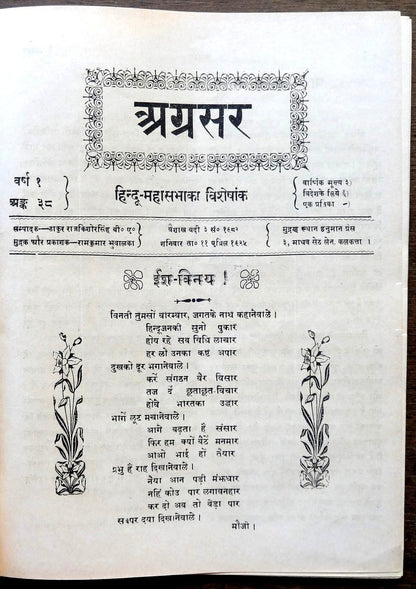 अग्रसर
वर्ष १
अङ्क ३८
हिन्दू-महासभाका विशेषांक
वार्षिक मूल्य ३)
विदेशके लिये ६)
एक प्रतिका -)
सम्पादक—ठाकुर राजकिशोरसिंह बी० ए०
मुद्रक और प्रकाशक—रामकुमार भुवालका
वैशाख बदी ३ सं० १९८२
शनिवार ता० ११ एप्रिल १९२५
मुद्रण स्थान हनुमान प्रेस
३, माधव सेठ लेन, कलकत्ता ।
ईश-विनय !
विनती तुमसों बारम्बार, जगतके नाथ कहानेवाले ।
हिन्दूजनकी सुनो पुकार
होय रहे सब विधि लाचार
हर लो उनका कष्ट अपार
दुखको दूर भगानेवाले ।
करें संगठन बैर बिसार
तज दें छूताछूत-विचार
होवे भारतका उद्धार
भागें लूट मचानेवाले ।
आगे बढ़ता है संसार
फिर हम क्यों बैठें मनमार
आओ भाई हों तैयार
प्रभु हैं राह दिखानेवाले ।
नैया आन पड़ी मंझधार
नहिं कोउ पार लगावनहार
कर दो अब तो बेड़ा पार
सबपर दया दिखानेवाले ।
मौजी ।